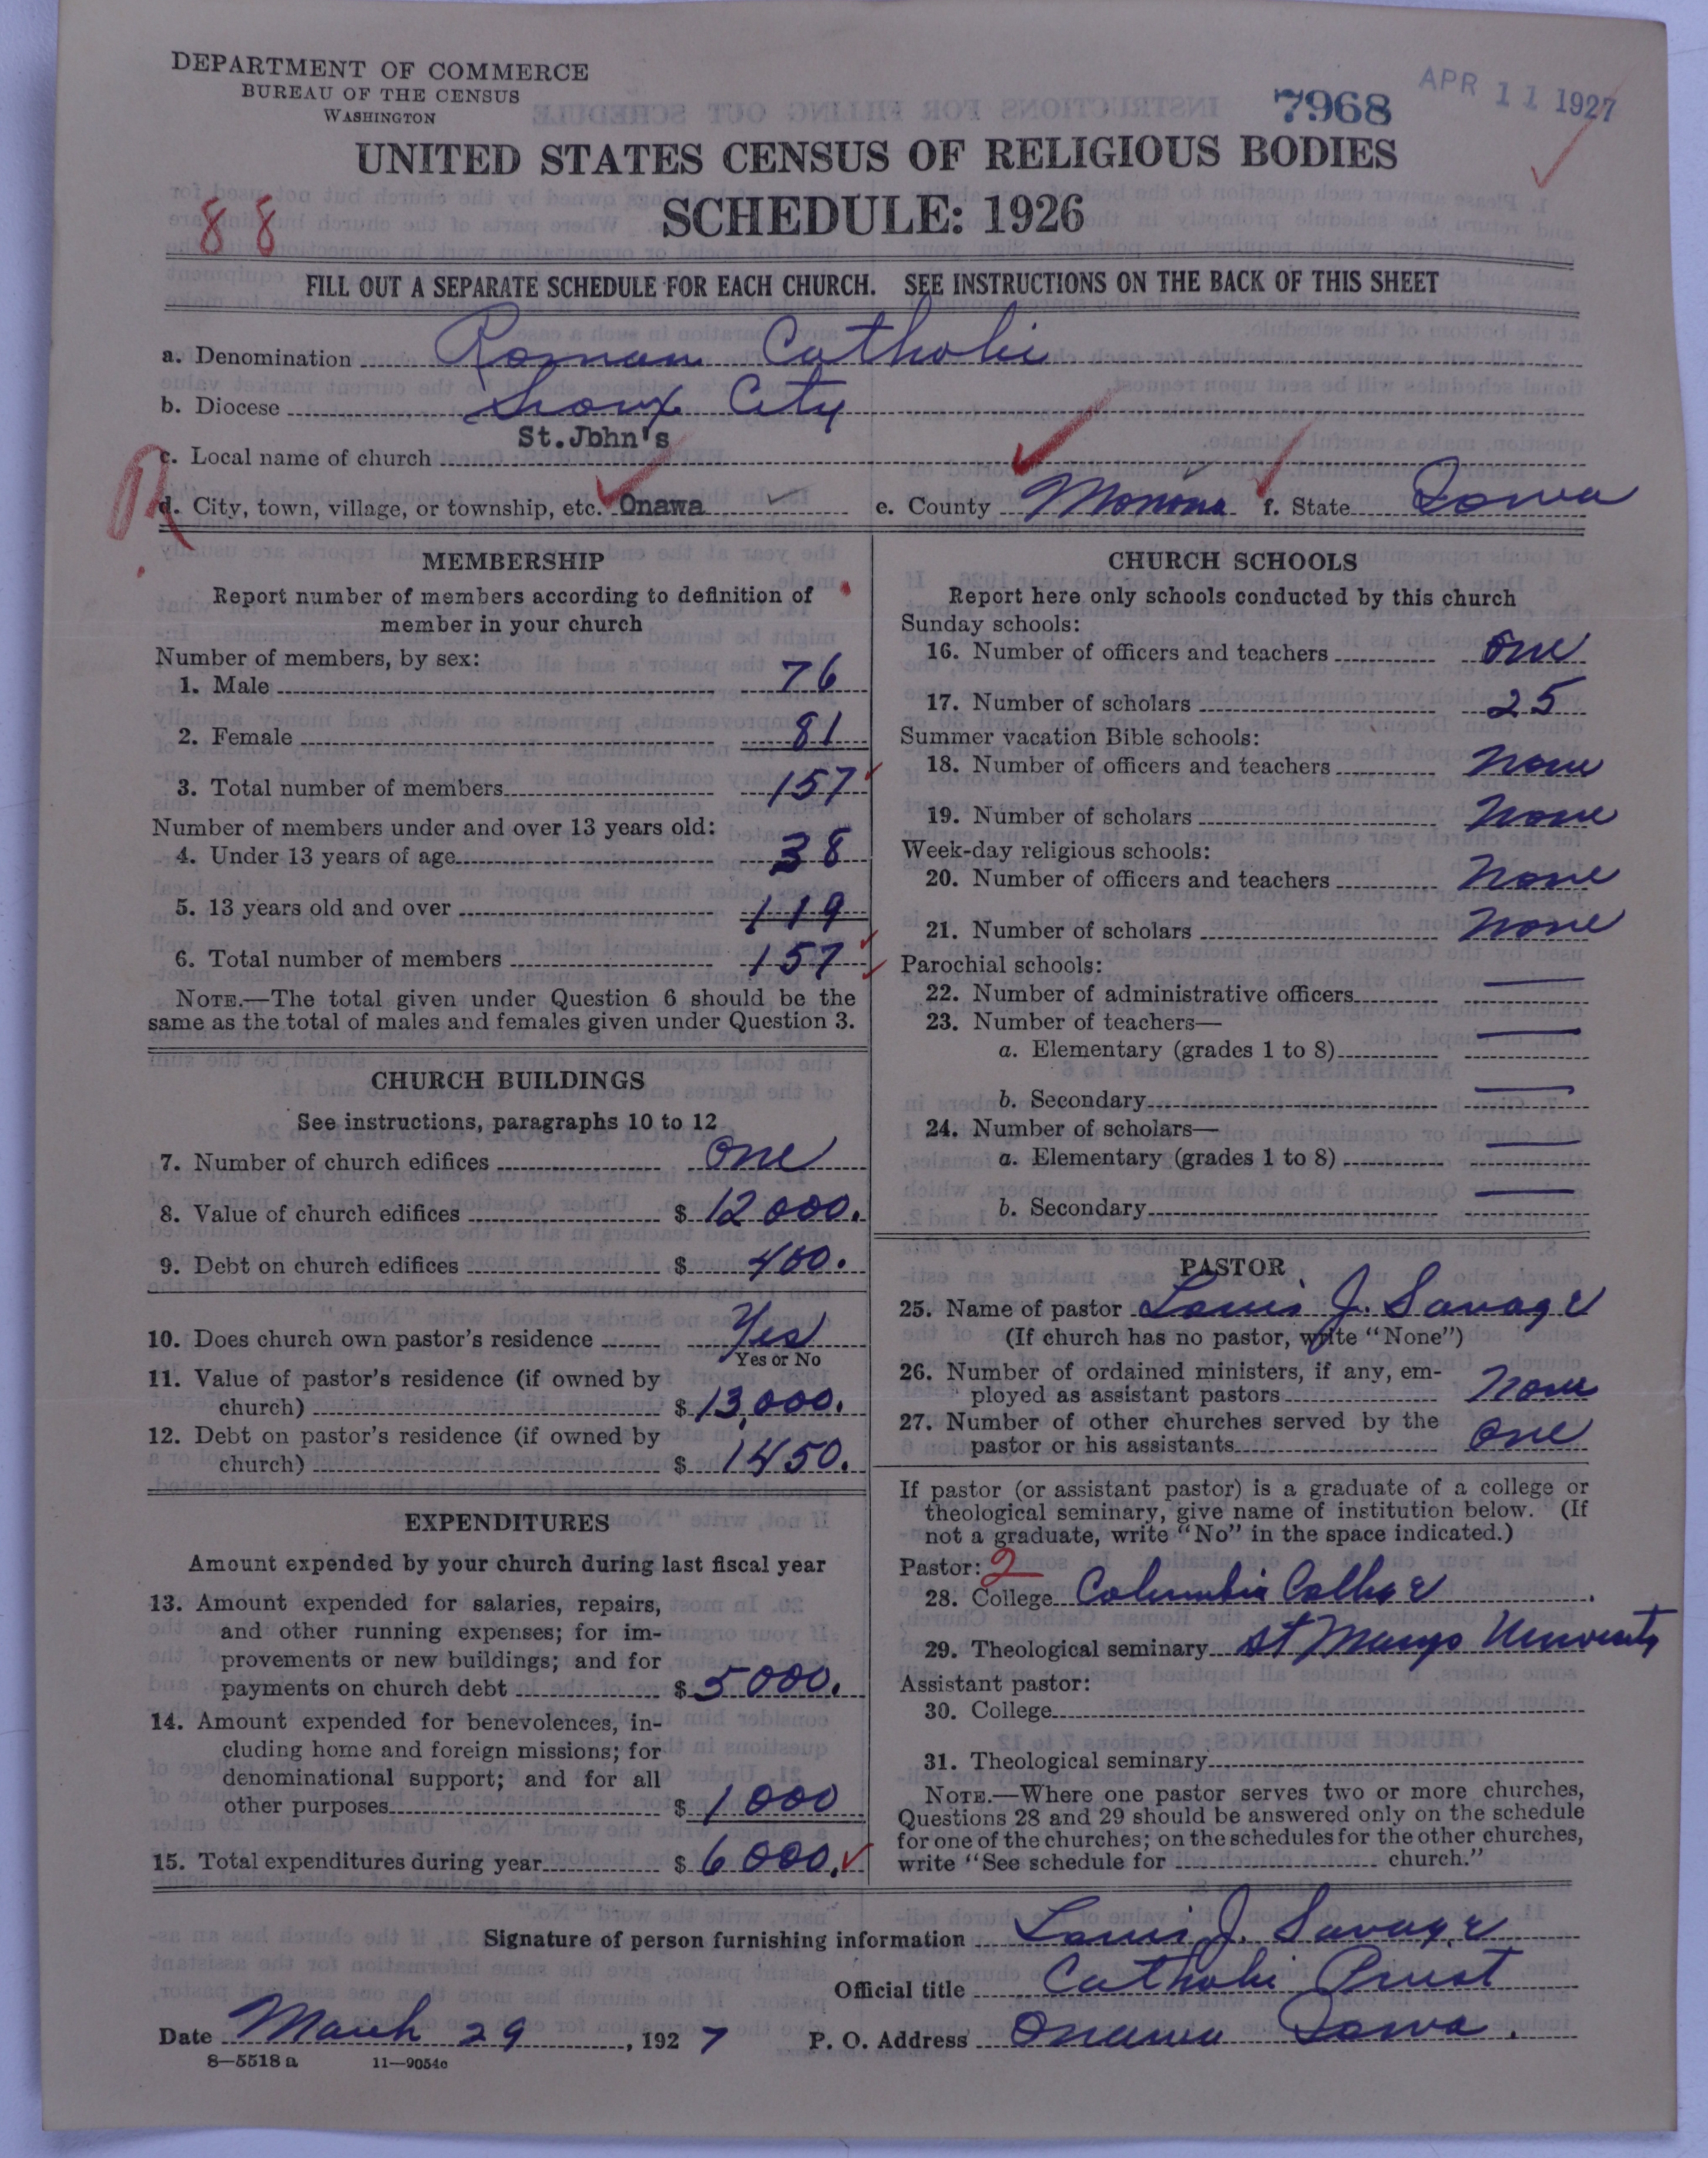 DEPARTMENT OF COMMERCE
BUREAU OF THE CENSUS
WASHINGTON
7968
APR 11 1927
UNITED STATES CENSUS OF RELIGIOUS BODIES
SCHEDULE: 1926
88
FILL OUT A SEPARATE SCHEDULE FOR EACH CHURCH. SEE INSTRUCTIONS ON THE BACK OF THIS SHEET
a. Denomination Roman Catholic
b. Diocese Sioux City
St.Jbhn's
c. Local name of church
R
d. City, town, village, or township, etc. Onawa e. County Monona f. State Iowa
MEMBERSHIP
Report number of members according to definition of
member in your church
Number of members, by sex:
1. Male 76
2. Female 81
3. Total number of members 157
Number of members under and over 13 years old:
4. Under 13 years of age 38
5. 13 years old and over 119
6. Total number of members 157
NOTE.—The total given under Question 6 should be the
same as the total of males and females given under Question 3.
CHURCH BUILDINGS
See instructions, paragraphs 10 to 12
7. Number of church edifices one
8. Value of church edifices $ 12000.
9. Debt on church edifices $ 400.
10. Does church own pastor's residence Yes
Yes or No
11. Value of pastor's residence (if owned by
church) $ 13,000.
12. Debt on pastor's residence (if owned by
church) $ 1450.
EXPENDITURES
Amount expended by your church during last fiscal year
13. Amount expended for salaries, repairs,
and other running expenses; for im-
provements or new buildings; and for
payments on church debt $ 5000.
14. Amount expended for benevolences, in-
cluding home and foreign missions; for
denominational support; and for all
other purposes $ 1000
15. Total expenditures during year $ 6000.
CHURCH SCHOOLS
Report here only schools conducted by this church
Sunday schools:
16. Number of officers and teachers one
17. Number of scholars 25
Summer vacation Bible schools:
18. Number of officers and teachers None
19. Number of scholars None
Week-day religious schools:
20. Number of officers and teachers None
21. Number of scholars None
Parochial schools:
22. Number of administrative officers —
23. Number of teachers—
a. Elementary (grades 1 to 8) —
b. Secondary —
24. Number of scholars—
a. Elementary (grades 1 to 8) —
b. Secondary —
PASTOR
25. Name of pastor Louis J. Savage
(If church has no pastor, write "None")
26. Number of ordained ministers, if any, em-
ployed as assistant pastors None
27. Number of other churches served by the
pastor or his assistants One
If pastor (or assistant pastor) is a graduate of a college or
theological seminary, give name of institution below. (If
not a graduate, write "No" in the space indicated.)
Pastor: 2
28. College Columbia College
29. Theological seminary St Marys University
Assistant pastor:
30. College
31. Theological seminary
NOTE.—Where one pastor serves two or more churches,
Questions 28 and 29 should be answered only on the schedule
for one of the churches; on the schedules for the other churches,
write "See schedule for church."
Signature of person furnishing information Louis J. Savage
Official title Catholic Priest
Date March 29, 1927 P. O. Address Onawa Iowa.
8—5518 a 11—9054c